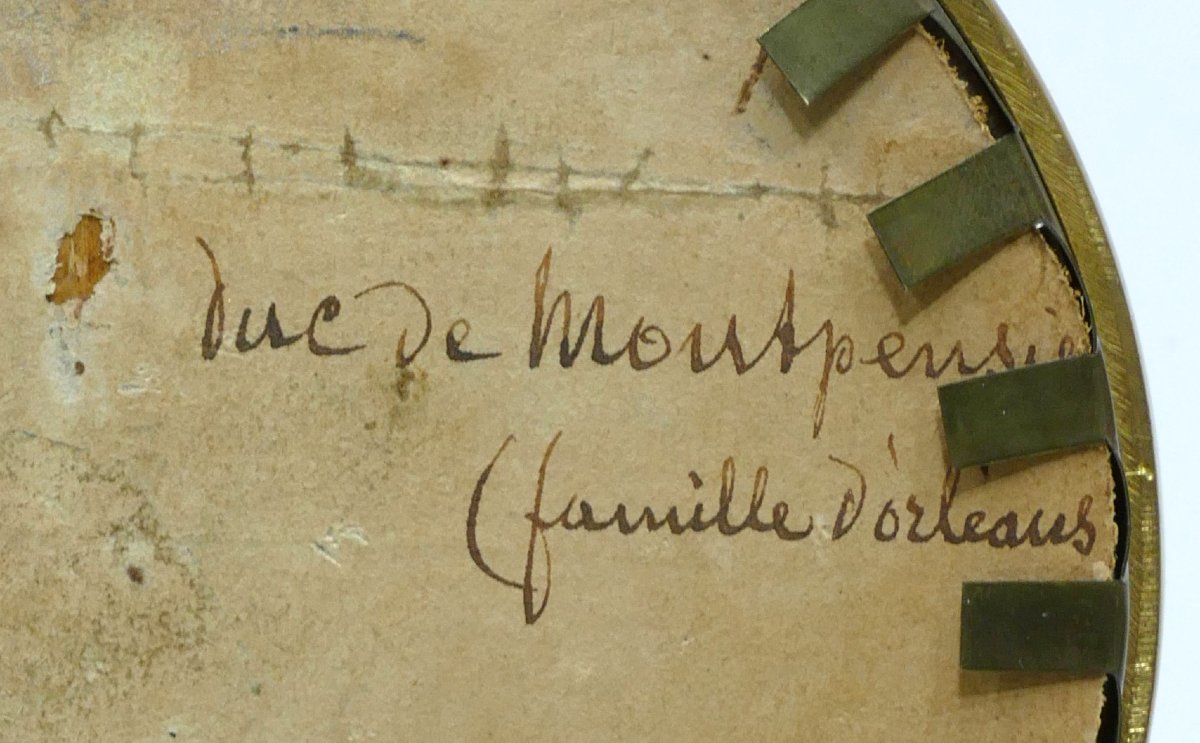 duc de Montpensie
(famille d'orléans